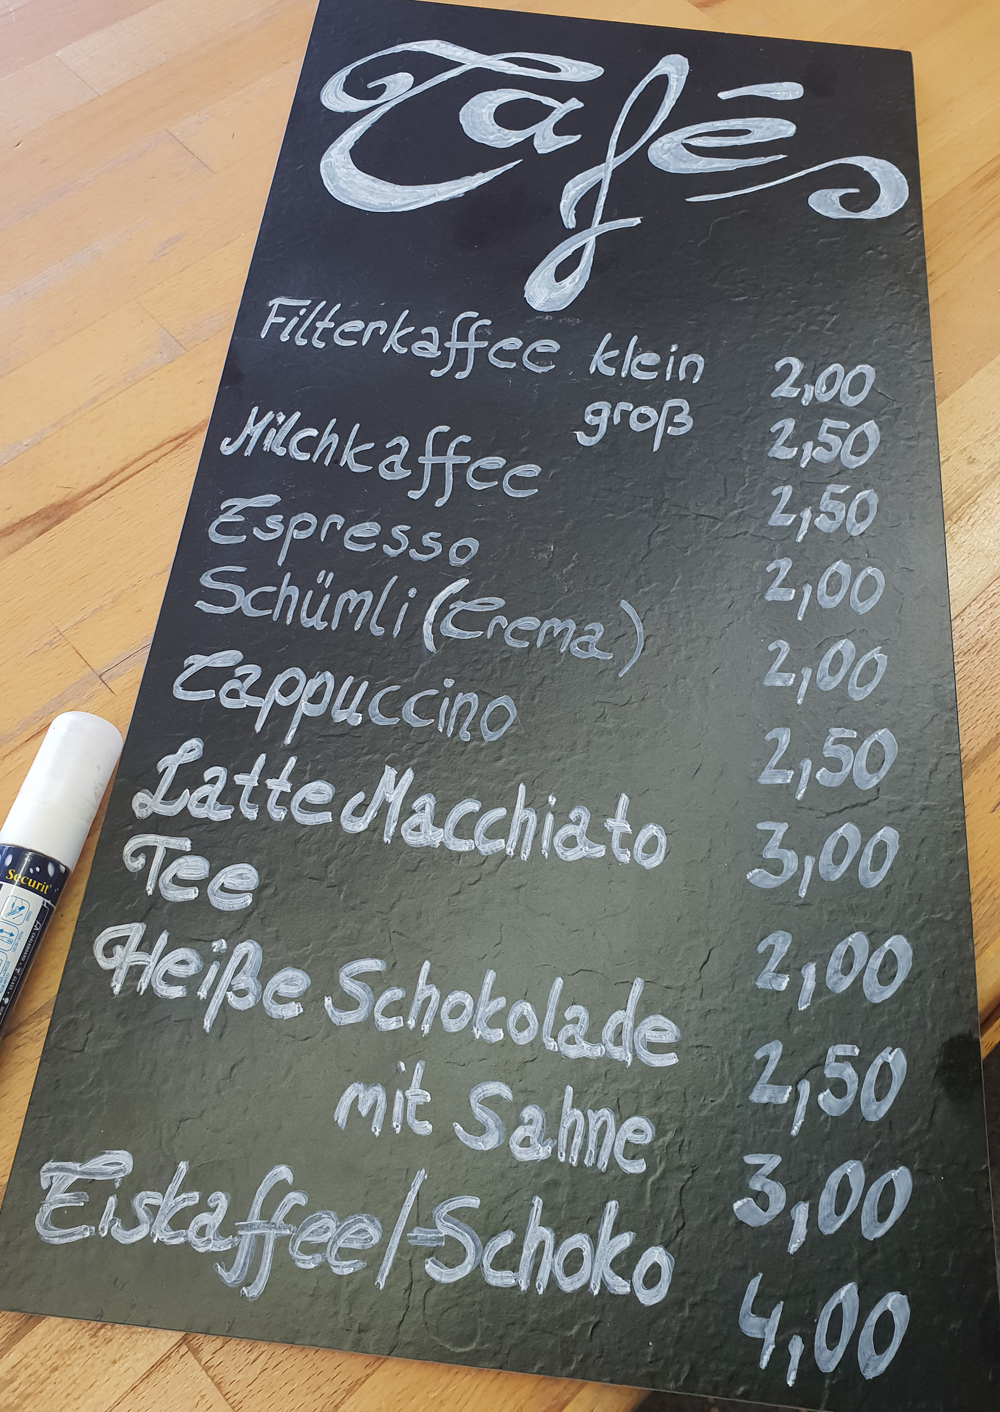 Café
Filterkaffee klein 2,00
groß 2,50
Milchkaffee 2,50
Espresso 2,00
Schümli (Crema) 2,00
Cappuccino 2,50
Latte Macchiato 3,00
Tee 2,00
Heiße Schokolade 2,50
mit Sahne 3,00
Eiskaffee/-Schoko 4,00
Securit